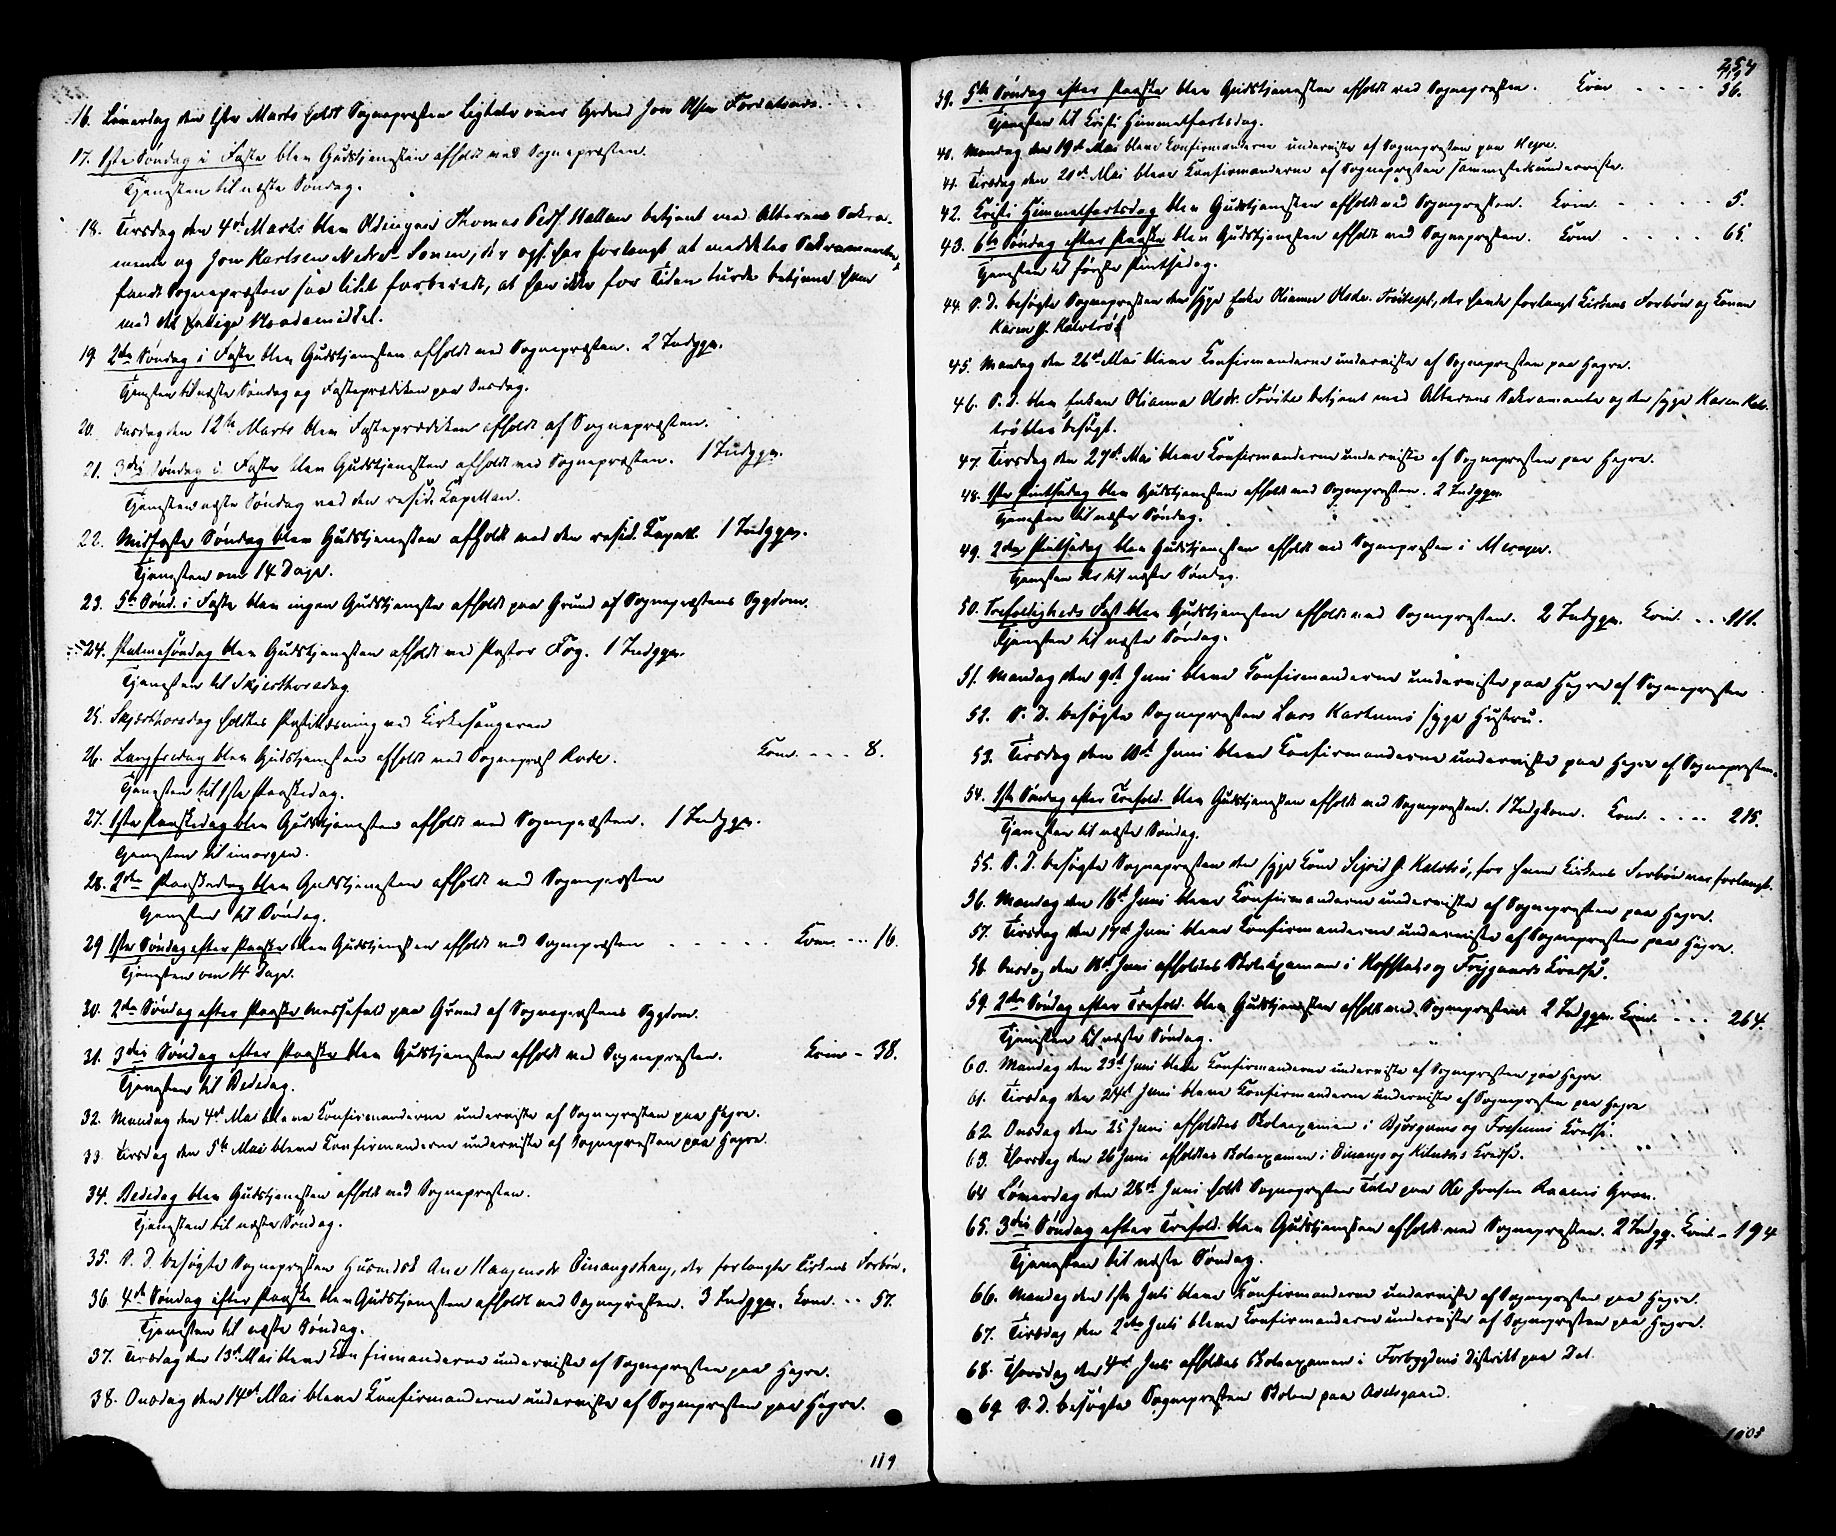 16. Løverdag den 1ste Marts holdt Sognepræsten Ligtale over Jon Olsen
17. 1ste Søndag i Faste blev Gudstjenesten afholdt ved Sognepræsten.
Tjenesten til næste Søndag.
18. Tirsdag den 4de Marts blev Thomas Ped. betjent med Alterens Sakra-
mente og Jon Karlsen Nedre- der ogs. har forlangt at meddeles Sakramentet,
fandt Sognepræsten saa lidet forberedt, at han ikke for Tiden turde betjene ham
med det hellige Naademiddel.
19. 2den Søndag i Faste blev Gudstjenesten afholdt ved Sognepræsten. 2 Indggn.
Tjenesten til næste Søndag og Fasteprædiken paa Onsdag.
20. Onsdag den 12te Marts blev Fasteprædiken afholdt af Sognepræsten.
21. 3die Søndag i Faste blev Gudstjenesten afholdt ved Sognepræsten. 1 Indggn.
Tjenesten næste Søndag ved den resid. Kapellan.
22. Midfaste Søndag blev Gudstjenesten afholdt ved den resid. Kapell. 1 Indggn.
Tjenesten om 14 Dage.
23. 5te Sønd. i Faste blev ingen Gudstjeneste afholdt paa Grund af Sognepræstens Sygdom.
24. Palmesøndag blev Gudstjenesten afholdt ved Pastor Fog. 1 Indggn.
Tjenesten til Skjærthorsdag
25. Skjærthorsdag holdtes Postillæsning ved Kirkesangeren
26. Langfredag blev Gudstjenesten afholdt ved Sognepræst Rode. Kom. - - - 8.
Tjenesten til 1ste Paaskedag.
27. 1ste Paaskedag blev Gudstjenesten afholdt ved Sognepræsten. 1 Indggn.
Tjenesten til imorgen.
28. 2den Paaskedag blev Gudstjenesten afholdt ved Sognepræsten
Tjenesten til Søndag.
29 1ste Søndag efter Paaske blev Gudstjenesten afholdt ved Sognepræsten - - - - - Kom. - - - 16.
Tjenesten om 14 Dage.
30. 2den Søndag efter Paaske Messefald paa Grund af Sognepræstens Sygdom.
31. 3die Søndag efter Paaske blev Gudstjenesten afholdt ved Sognepræsten. Kom - 38.
Tjenesten til Bededag.
32. Mandag den 4de Mai bleve Konfirmanderne underviste af Sognepræsten paa Hegre.
33 Tirsdag den 5te Mai bleve Konfirmanderne underviste af Sognepræsten paa Hegre.
34. Bededag blev Gudstjenesten afholdt ved Sognepræsten.
Tjenesten til næste Søndag.
35. S. D. besøgte Sognepræsten Ane der forlangte Kirkens Forbøn.
36. 4de Søndag efter Paaske blev Gudstjenesten afholdt ved Sognepræsten. 3 Indggn. Kom. - - 57.
Tjenesten til næste Søndag.
37. Tirsdag den 13de Mai bleve Konfirmanderne underviste af Sognepræsten paa Hegre.
38. Onsdag den 14de Mai bleve Konfirmanderne underviste af Sognepræsten paa Hegre.
119
257
39. 5te Søndag efter Paaske blev Gudstjenesten afholdt ved Sognepræsten. Kom - - - - 36.
Tjenesten til Kristi Himmelfartsdag.
40. Mandag den 19de Mai bleve Konfirmanderne underviste af Sognepræsten paa Hegre.
41. Tirsdag den 20de Mai bleve Konfirmanderne af Sognepræsten sammesteds underviste.
42. Kristi Himmelfartsdag blev Gudstjenesten afholdt ved Sognepræsten. Kom. - - - - - 5.
43. 6te Søndag efter Paaske blev Gudstjenesten afholdt ved Sognepræsten. Kom - - - - 65.
Tjenesten til første Pintsedag.
44. S. D. besøgte Sognepræsten den syge Enke Olianna Olsdr. der havde forlangt Kirkens Forbøn og Konen
Karen
45. Mandag den 26de Mai bleve Konfirmanderne underviste af Sognepræsten paa Hegre.
46. S. D. blev Enken Olianna Olsdr. betjent med Alterens Sakramente og den syge Karen
besøgt.
47. Tirsdag den 27de Mai bleve Konfirmanderne underviste af Sognepræsten paa Hegre.
48. 1ste Pintsedag blev Gudstjenesten afholdt ved Sognepræsten. 2 Indggn.
Tjenesten til næste Søndag.
49. 2den Pintsedag blev Gudstjenesten afholdt ved Sognepræsten i Meraker.
Tjenesten her til næste Søndag.
50. Trefoldigheds Fest blev Gudstjenesten afholdt ved Sognepræsten. 2 Indggn. Kom. - - 111.
Tjenesten til næste Søndag.
51. Mandag den 9de Juni bleve Konfirmanderne underviste paa Hegre af Sognepræsten
52. S. D. besøgte Sognepræsten Lars syge Hustru.
53. Tirsdag den 10de Juni bleve Konfirmanderne underviste paa Hegre af Sognepræsten.
54. 1ste Søndag efter Trefold. blev Gudstjenesten afholdt ved Sognepræsten. 1 Kom. - - - - 215.
Tjenesten til næste Søndag.
55. S. D. besøgte Sognepræsten den syge Kone for hvem Kirkens Forbøn var forlangt.
56. Mandag den 16de Juni bleve Konfirmanderne underviste af Sognepræsten paa Hegre.
57. Tirsdag den 17de Juni bleve Konfirmanderne underviste af Sognepræsten paa Hegre.
58. Onsdag den 18de Juni afholdtes Skoleexamen i Hofstads og Kredse.
59. 2den Søndag efter Trefold. blev Gudstjenesten afholdt ved Sognepræsten. 2 Indggn. Kom. - - - 264.
Tjenesten til næste Søndag.
60. Mandag den 23de Juni bleve Konfirmanderne underviste af Sognepræsten paa Hegre
61. Tirsdag den 24de Juni bleve Konfirmanderne underviste af Sognepræsten paa Hegre
62. Onsdag den 25 Juni afholdtes Skoleexamen i og Kredse.
63. Thorsdag den 26 Juni afholdtes Skoleexamen i og Kredse.
64 Løverdag den 28de Juni holdt Sognepræsten Tale paa Ole Jonsen Grav.
65. 3die Søndag efter Trefold. blev Gudstjenesten afholdt ved Sognepræsten. 2 Indgg. Kom. - 194
Tjenesten til næste Søndag.
66. Mandag den 1ste Juli bleve Konfirmanderne underviste af Sognepræsten paa Hegre.
67. Tirsdag den 2den Juli bleve Konfirmanderne underviste af Sognepræsten paa Hegre.
68. Thorsdag den 4de Juli afholdtes Skoleexamen i distrikt paa
69 S. D. besøgte Sognepræsten Skolen paa
1008